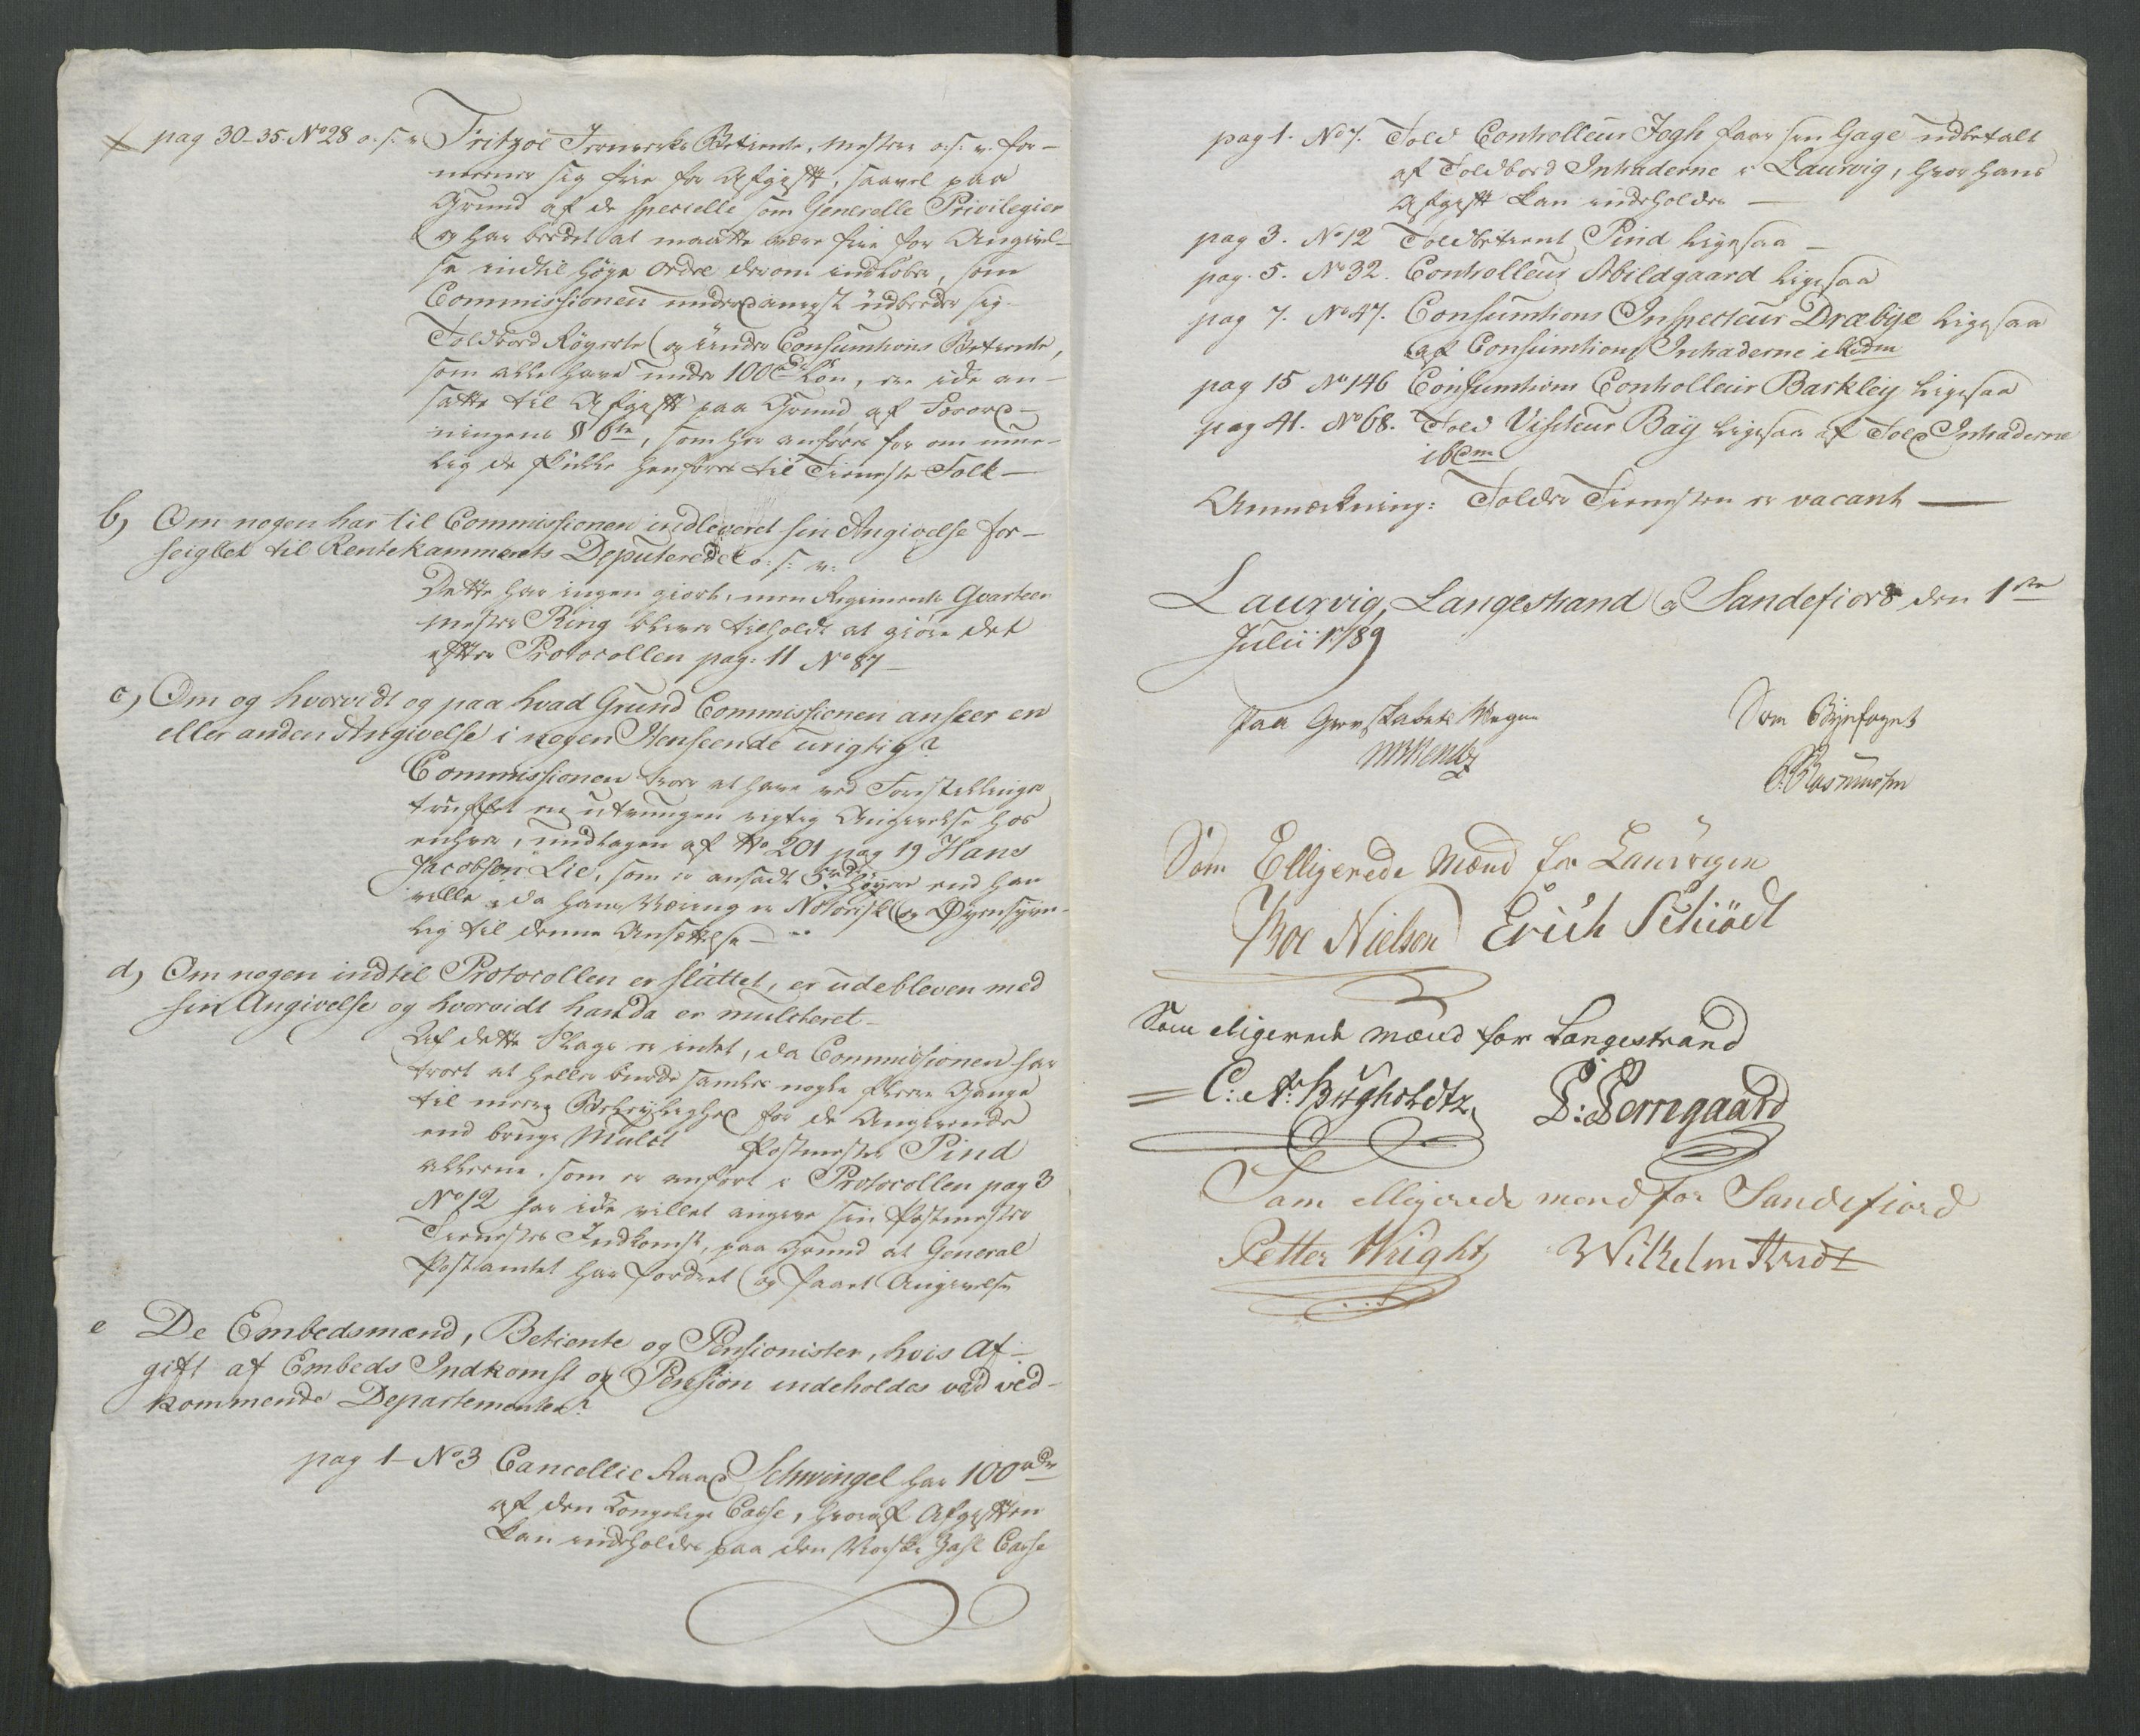 ✗ pag 30-35. No 28 o: s: v Fritzøe Jernwerks Betiente, Mestere o: s: v. for-
meener sig frie for Afgift, saavel paa
Grund af de specielle som Generelle Privilegier
og har beedet at maatte være frie for Angivel-
se indtil høye Ordre derom indløber, som
Commissionen underdanigst udbeeder sig.
Toldbord Røgerte og andre Consumtions Betiente,
som alle have under 100 rdr Løn, ere icke an-
satte til Afgift paa Grund af Forord-
ningens § 6te, som her anføres for om mue-
lig de skulle henføres til Tieneste Folk —
b, Om nogen har til Commissionen indleveret sin Angivelse for-
seiglet til Rentekammerets Deputerede o: s: v:
Dette har ingen giort, men Regiments Qvarteer
Mester Ring bliver tilholdt at giøre det
efter Protocollen pag: 11 No 87 —
c, Om og hvorvidt og paa hvad Grund Commissionen anseer en
eller anden Angivelse i nogen Henseende urigtig?
Commissionen troer at have ved Forestillinger
truffet en utvungen rigtig Angivelse hos
enhver, undtagen af No 201 pag 19 Hans
Jacobsøn Lie, som er ansadt 5 rdr høyere end han
ville, da hans Næring er Notorisk og Øyensyn-
lig til denne Ansættelse —
d, Om nogen indtil Protocollen er sluttet, er udebleven med
sin Angivelse og hvorvidt han da er mulcteret —
Af dette Slags er intet, da Commissionen har
troet at heller burde samles nogle fleere Gange
til meere Beleylighed for de Angivende
end bruge Mulct Postmester Pind
alleene, som er anført i Protocollen pag 3
No 12 har icke villet angive sin Postmester
Tienestes Indkomst, paa Grund at General
Postamtet har fordret og faaet Angivelse
e De Embedsmænd, Betiente og Pensionister, hvis Af-
gift af Embeds Indkomst og Pension indeholdes ved ved-
kommende Departementer?
pag 1 — No 3 Cancellie Raad Schwingel har 100 rdr
af den Kongelige Casse, hvoraf Afgiften
kan indeholdes paa den Norske Zahl Casse
pag 1. No 7. Told Controlleur Fogh faar sin Gage udbetalt
af Toldbord Intraderne i Laurvig, hvor hans
Afgift kan indeholdes —
pag 3. No 12 Toldbetient Pind ligesaa —
pag. 5. No 32. Controlleur Abildgaard ligesaa
pag 7. No 47. Consumtions Inspecteur Dræbye ligesaa
af Consumtions Intraderne ibidm
pag 15 No 146 Consumtions Controlleur Barkley ligesaa
pag 41. No 68. Told Visiteur Bay ligesaa af Told Intraderne
ibdm
Anmærkning: Tolder Tienesten er vacant —
Laurvig, Langestrand og Sandefiord den 1ste
Julii 1789
Paa Grevskabets Vegne
Som Byefoged
Rasmusen
Som Elligerede Mænd for Laurvigen
Boe Nielsen Erich Schiødt
Som eligerede mænd for Langestrand
C: A: Bugholdtz, S: Serregaard
Som elligerede mend for Sandefiord
Petter Wright Wilhelm Arndt